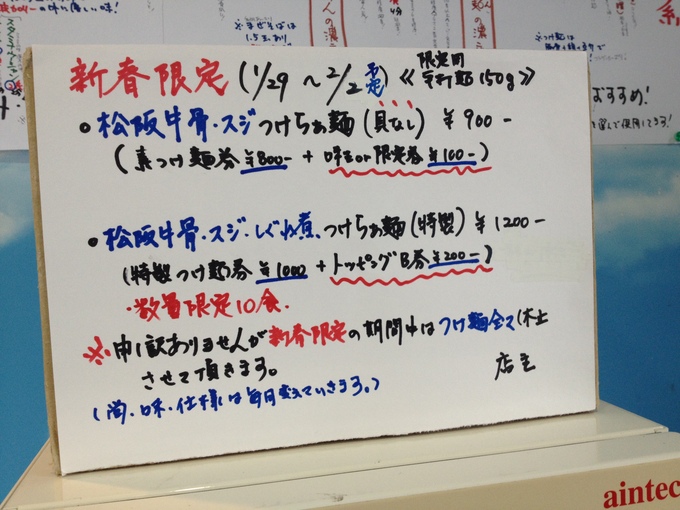 新春限定 (1/29 ～ 2/2 予定) 《限定用 平打麺 150g》
○ 松阪牛骨・スジつけらぁ麺 (具なし) ¥900-
(素つけ麺券 ¥800- + 味玉or限定券 ¥100-)
○ 松阪牛骨・スジ・しぐれ煮、つけらぁ麺 (特製) ¥1200-
(特製つけ麺券 ¥1000 + トッピングB券 ¥200-)
・数量限定10食.
※申し訳ありませんが新春限定の期間中はつけ麺全て休止
させて頂きます。
店主
(尚・味・仕様は毎日変えていきます。)
aintec
すすめ!